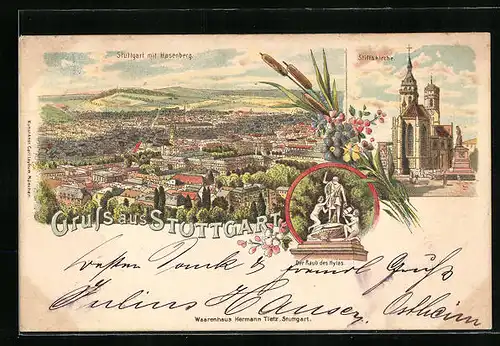 Stuttgart mit Hasenberg.
Stiftskirche
Gruß aus STUTTGART.
Der Raub des Hylas.
besten Dank & freundl Gruß
Julius Hausey. Ostheim
Waarenhaus Hermann Tietz, Stuttgart.